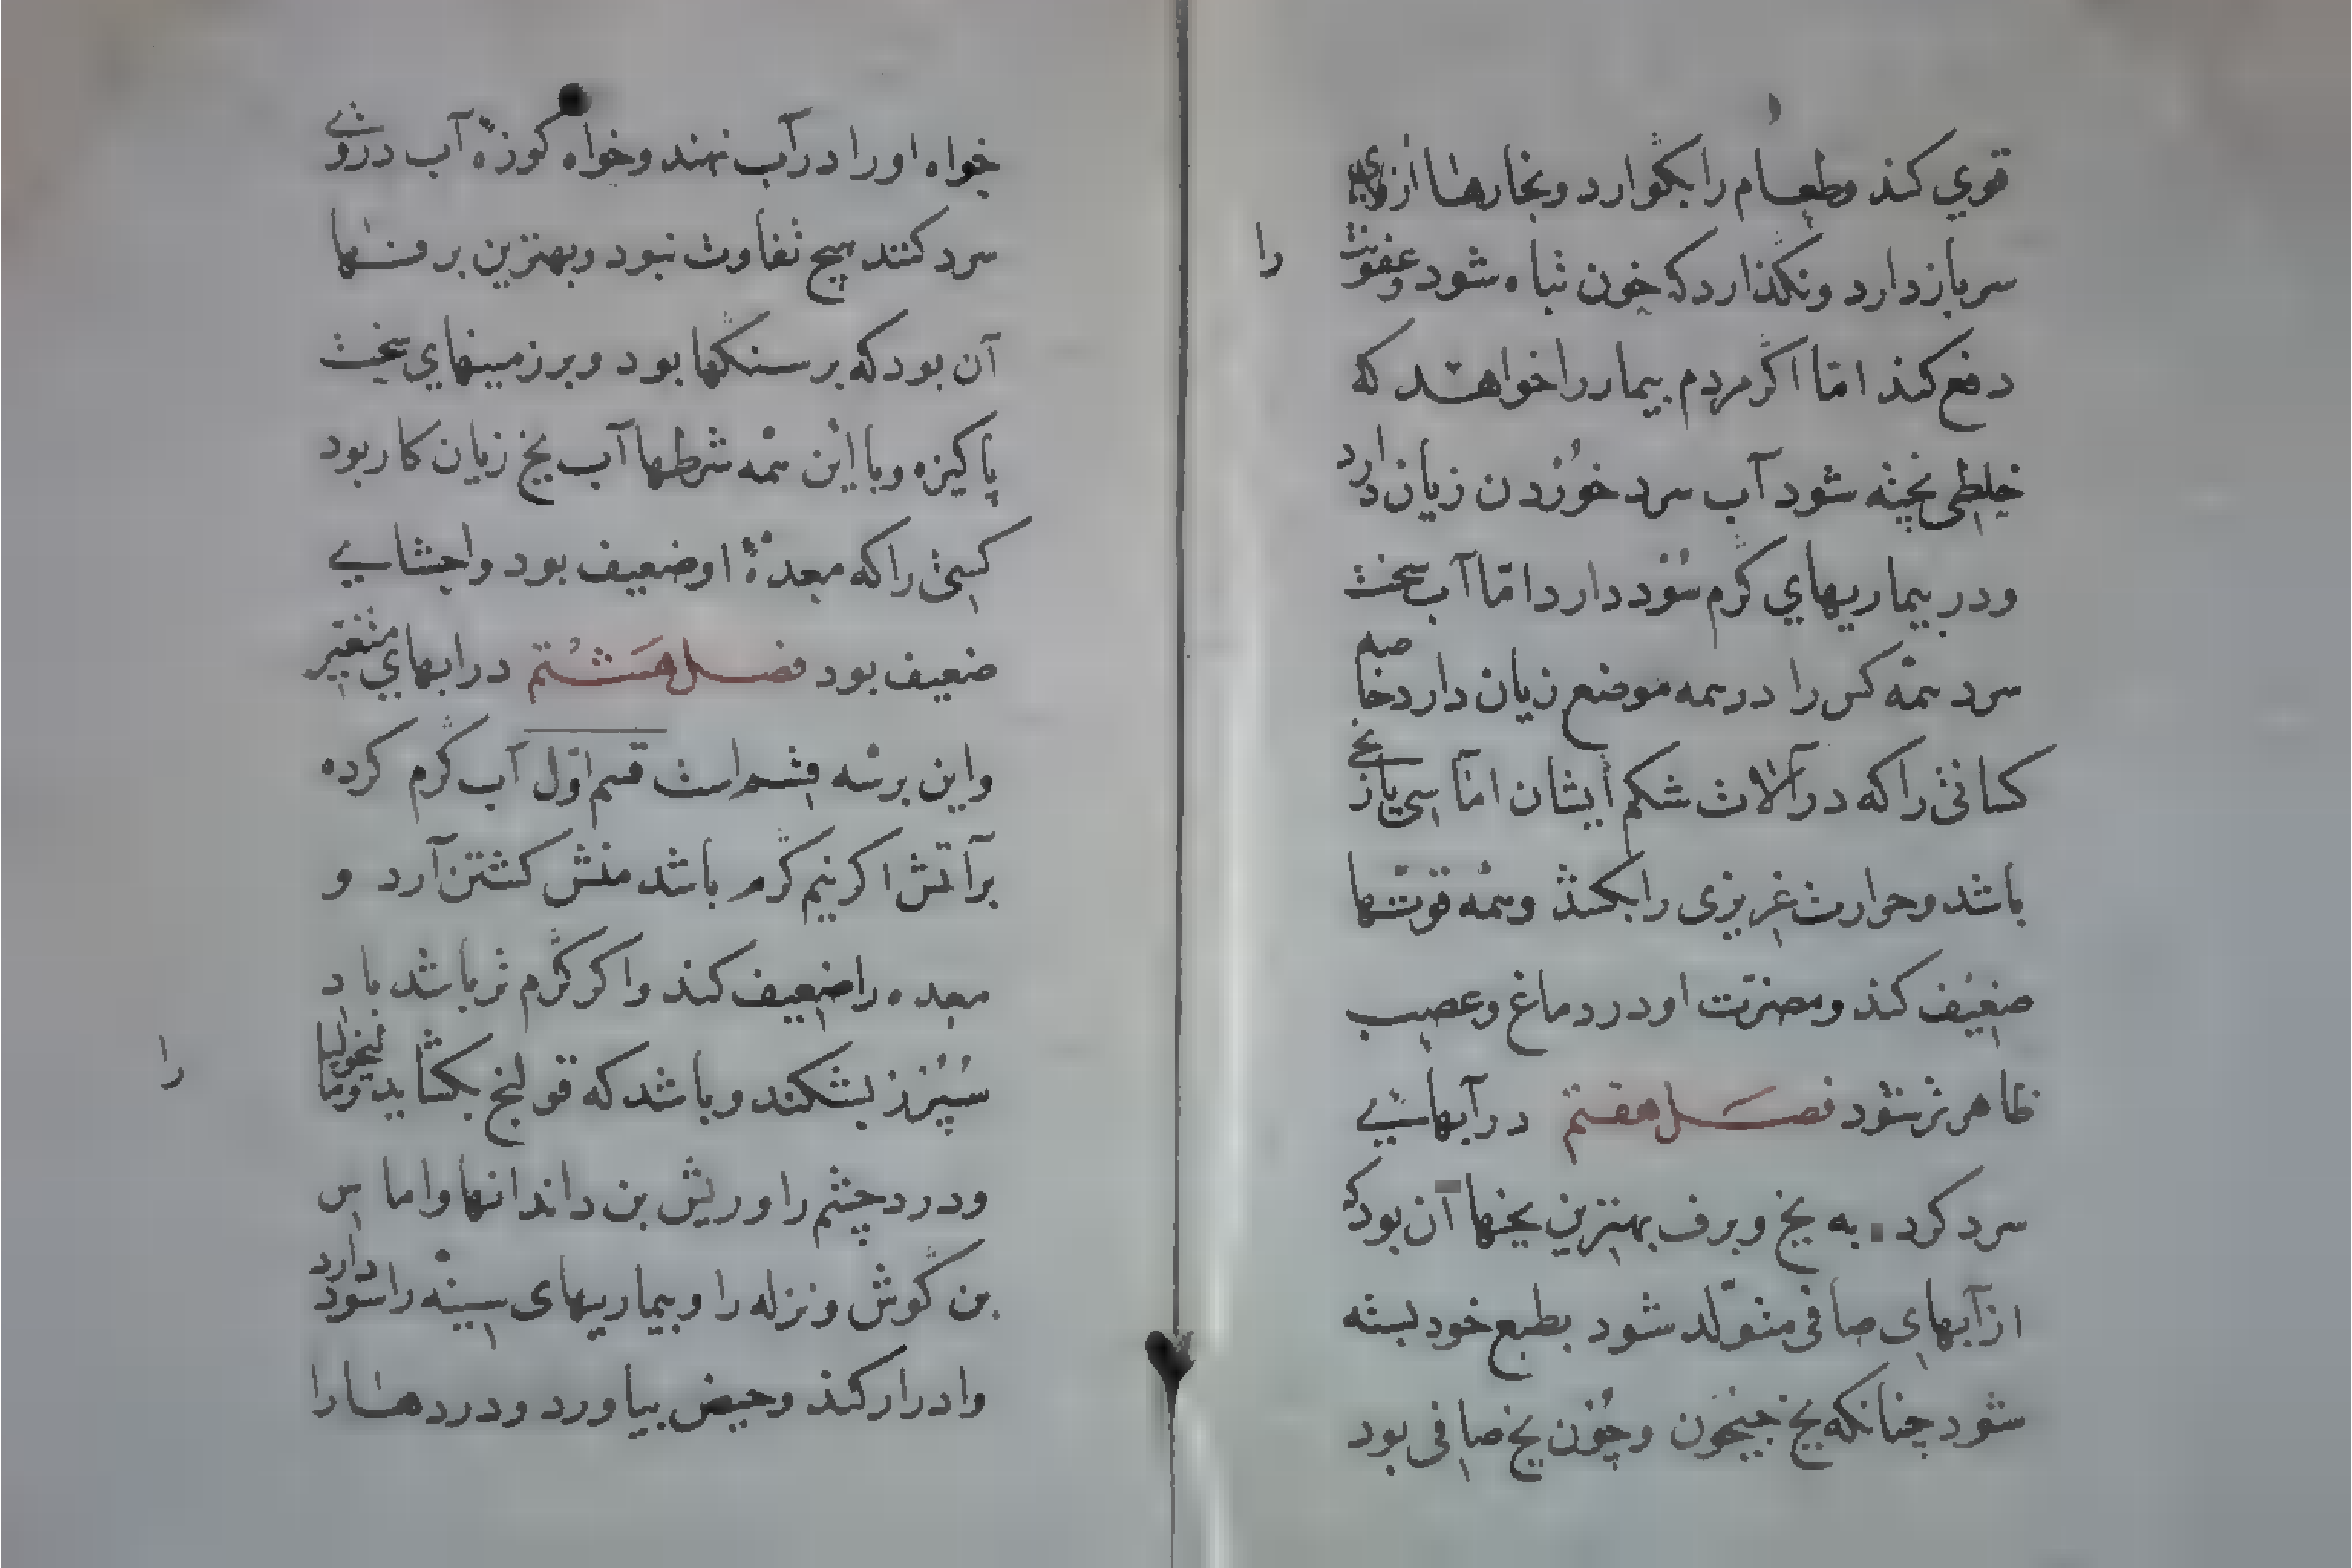 قوي كند وطعام را بكوارد وبخارها از
سر بازدارد ونكذارد كه خون تباه شود وعفونت
را
دفع كند اما اكر مردم بيمار را خواهند كه
خلطي پخته شود آب سرد خوردن زيان دارد
ودر بيماريهاي كرم سود دارد اما آب سخت
سرد همه كس را در همه موضع زيان دارد خاصه
كساني را كه در آلات شكم ايشان اماسي يا رنجي
باشد وحرارت غريزى را بكشد وهمه قوتها
ضعيف كند ومضرت او در دماغ وعصب
ظاهرتر شود فصل هفتم در آبهايي
سرد كرده به يخ وبرف بهترين يخها آن بود كه
از آبهاى صافي متولد شود بطبع خود بسته
شود چنانكه يخ جيحون وچون يخ صافى بود
خواه او را در آب نهند وخواه كوزه آب در وى
سرد كنند هيچ تفاوت نبود وبهترين برفها
آن بود كه بر سنكها بود وبر زمينهاي سخت
پاكيزه وبا اين همه شرطها آب يخ زيان كار بود
كسي را كه معدۀ او ضعيف بود واحشايي
ضعيف بود فصل هشتم در ابهاي متغير
واين بر سه قسم است قسم اول آب كرم كرده
بر آتش اكر نيم كرم باشد منش كشتن آرد و
معده را ضعيف كند واكر كرم تر باشد باد
سپرز بشكند وباشد كه قولنج بكشايد وماليخوليا
را
ودرد چشم را وريش بن داندانها واماس
بن كوش ونزله را وبيماريهاى سينه را سود دارد
وادرار كند وحيض بياورد ودردها را